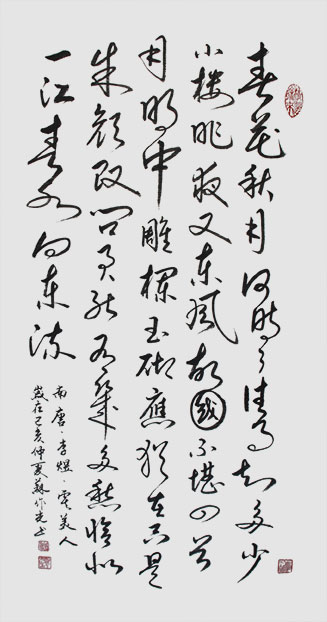 春花秋月何時了往事知多少
小樓昨夜又東風故國不堪回首
月明中雕欄玉砌應猶在只是
朱顏改問君能有幾多愁恰似
一江春水向東流
南唐·李煜·虞美人
歲在己亥仲夏蘇作光书